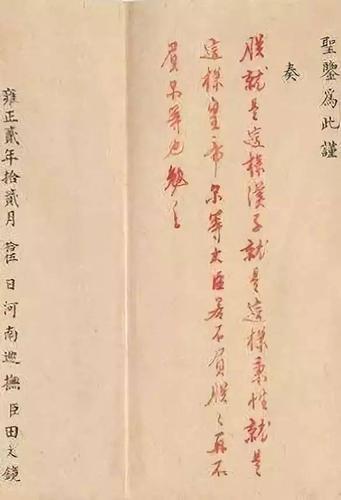 聖鑒為此謹
奏
朕就是這樣漢子就是這樣秉性就是
這樣皇帝尔等大臣若不負朕朕再不
負尔等也勉之
雍正貳年拾貳月拾伍日河南廵撫臣田文鏡